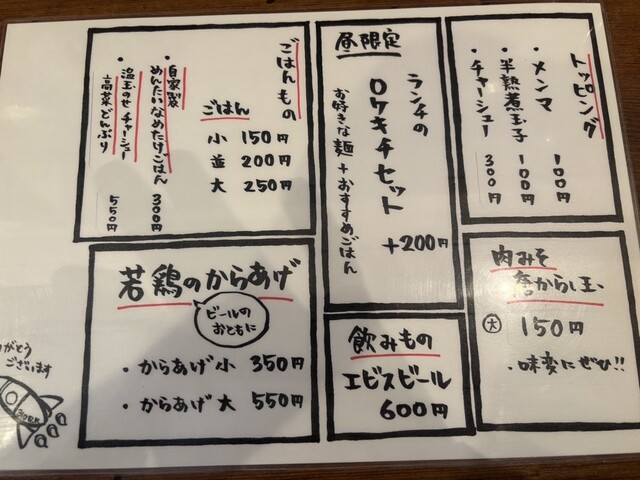 トッピング
・メンマ 100円
・半熟煮玉子 100円
・チャーシュー 300円
昼限定
ランチの
ロケキチセット
お好きな麺+おすすめごはん
+200円
ごはんもの
ごはん
小 150円
並 200円
大 250円
・自家製
めんたいなめたけごはん 300円
・温玉のせチャーシュー
高菜どんぶり 550円
肉みそ
からし玉
大 150円
・味変にぜひ!!
若鶏のからあげ
ビールの
おともに
・からあげ小 350円
・からあげ大 550円
飲みもの
エビスビール
600円
がとう
ございます